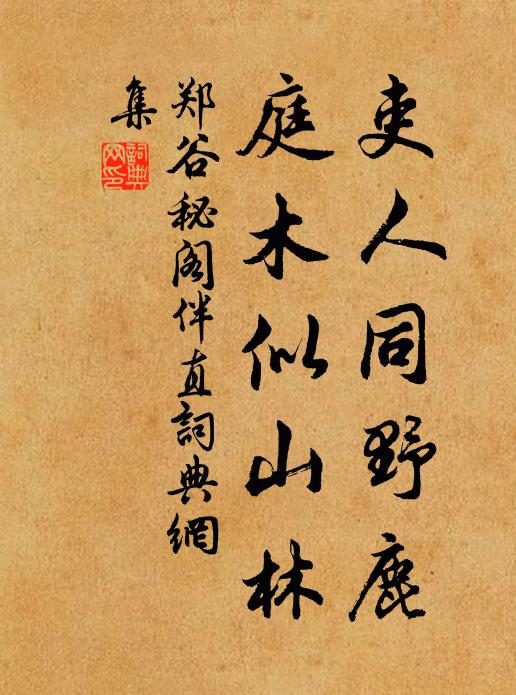 吏人同野鹿
庭木似山林
郑谷秘阁伴直詞典網
集
詞典
网印